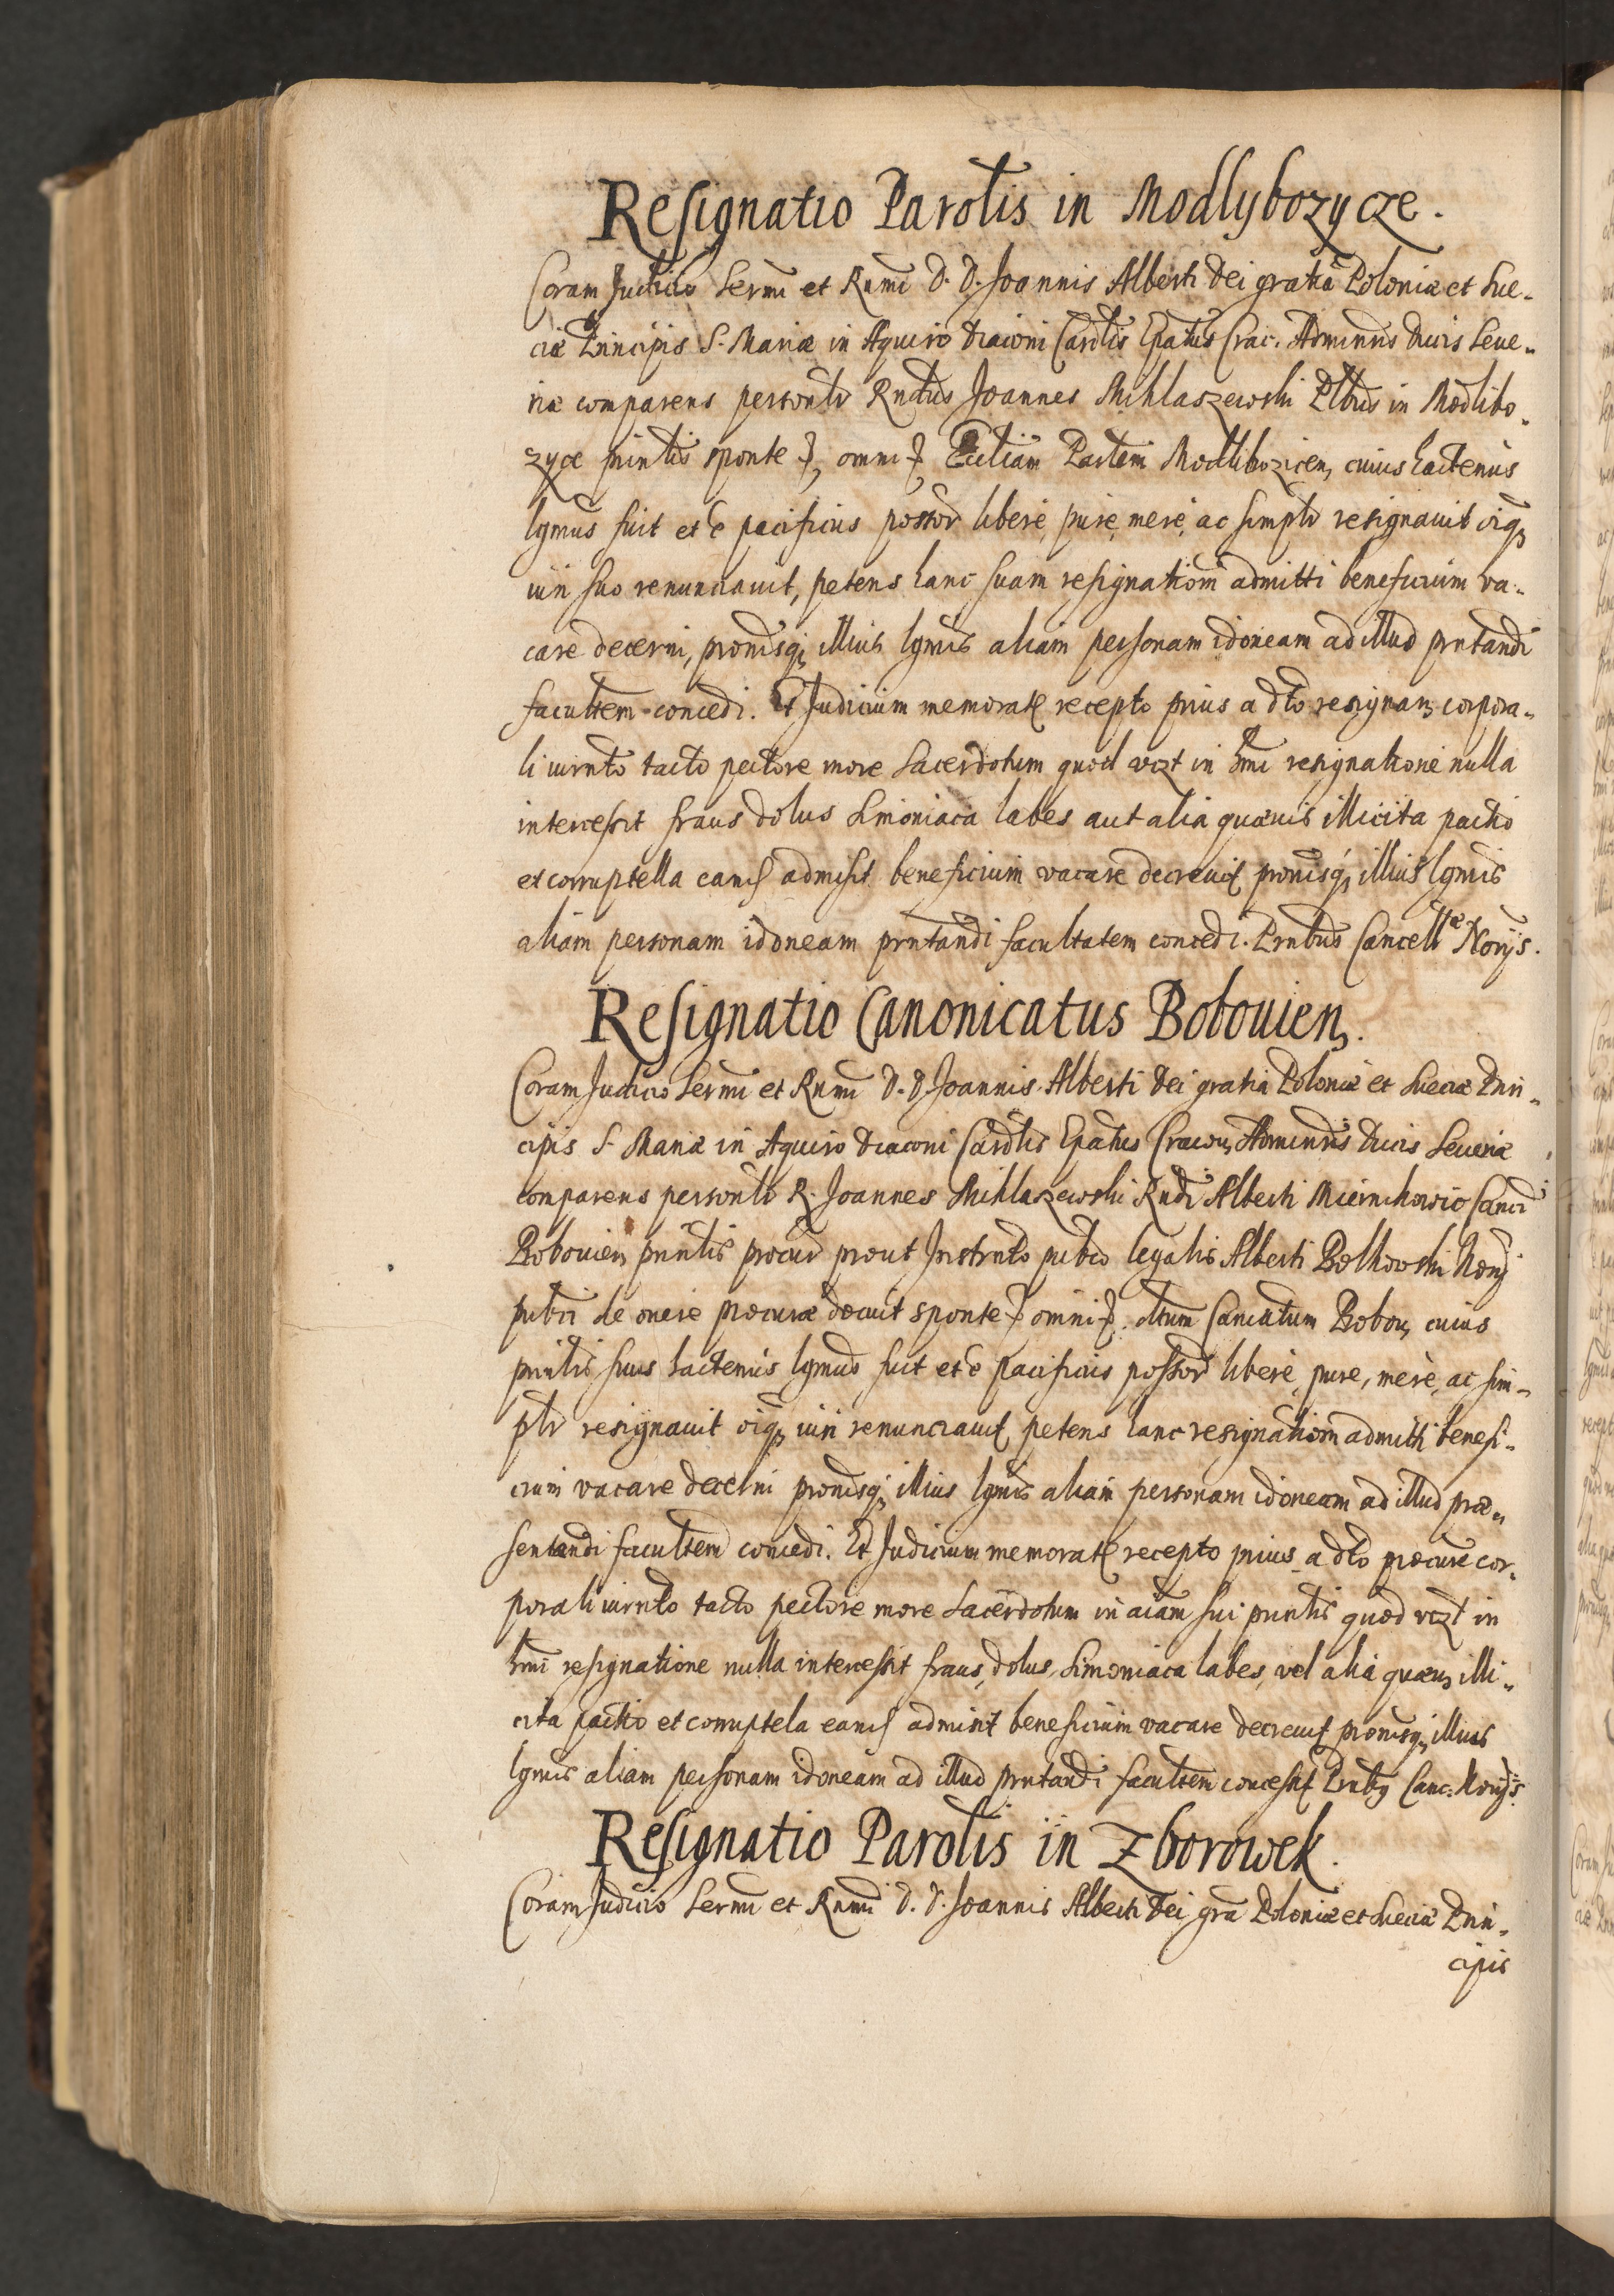 Resignatio Parolis in Modlybozycze.
Coram Judicio Sermi et Rnmi D. D. Joannis Alberti Dei gratia Poloniæ et Sue-
ciæ Principis S. Mariæ in Aquiro Diaconi Cardlis Epatus Crac. Adminris Ducis Seue-
riæ comparens personlr Rndus Joannes Mihlaszewski Plbus in Modlibo-
zyce prinlis sponte omni Ecliam Parlem Modlibozicen, cuius hactenus
lgmus fuit et e pacificus possor libere, pure, mere, ac simplr resignauit oiq
iuri suo renunciauit, petens hanc suam resignationi admitti beneficium va-
care decerni, promisq illius lgmis aliam personam idoneam ad illud prntandi
facultem concedi. Et Judicium memorat recepto prius a dto resignan, corpora-
li iurnto tacto pectore more Sacerdotum quod vizt in hmi resignatione nulla
intercessit fraus dolus simoniaca labes aut alia quæuis illicita pactio
et corruptella eams admisit beneficium vacare decreuit promisq illius lgmis
aliam personam idoneam prntandi facultatem concedi. Prntbus Cancellæ Norijs.
Resignatio Canonicatus Bobouien,.
Coram Judicio Sermi et Rnmi D. D. Joannis Alberti Dei gratia Poloniæ et Sueciæ Prin-
cipis S. Mariæ in Aquiro Diaconi Cardlis Epatus Cracou, Adminris Ducis Seueriæ
comparens personlr R. Joannes Mihlaszewski Rndi Alberti Canci
Bobouien, prinlis procur prout Instrnto pubco legalis Alberti Bolkowski Norij
pubci de onere procuræ docuit sponte omni dtum Cancatum Bobou, cuius
prinlis suus hactenus lgmus fuit et e pacificus possor libere, pure, mere, ac sim-
plr resignauit oiq iuri renunciauit, petens hanc resignationi admitti benefi-
cium vacare decerni promisq illius lgmis aliam personam idoneam ad illud præ-
sentandi facultem concedi. Et Judicium memorat recepto prius a dto procure cor-
porali iurnto tacto pectore more Sacerdotum in aiam sui prinlis quod vizt in
hmi resignatione nulla intercessit fraus, dolus, simoniaca labes, vel alia quæuis, illi-
cita pactio et corruptela eams admisit beneficium vacare decreuit promisq, illius
lgmis aliam personam idoneam ad illud prntandi facultem concessit Prntbs Canc: Norijs.
Resignatio Parolis in Zborowek.
Coram Judicio Sermi et Rnmi D. D. Joannis Alberti Dei gra Poloniæ et Sueciæ Prin-
cipis